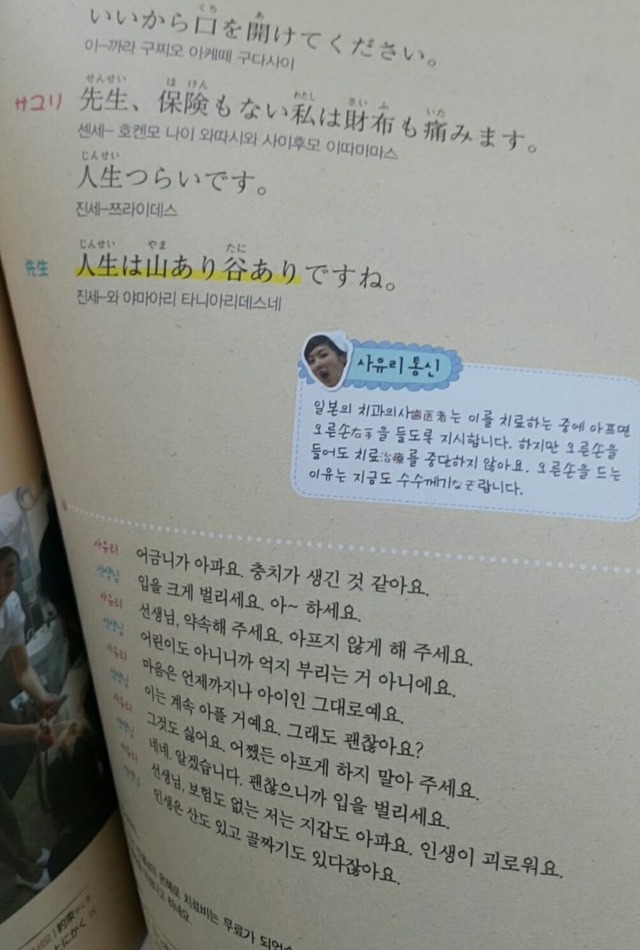 いいから口を開けてください。
이-까라 구찌오 아케떼 구다사이
サユリ 先生、保険もない私は財布も痛みます。
센세- 호켄모 나이 와따시와 사이후모 이따미마스
人生つらいです。
진세-쯔라이데스
先生 人生は山あり谷ありですね。
진세-와 야마아리 타니아리데스네
사유리 통신
일본의 치과의사歯医者는 이를 치료하는 중에 아프면
오른손右手을 들도록 지시합니다. 하지만 오른손을
들어도 치료治療를 중단하지 않아요. 오른손을 드는
이유는 지금도 수수께기なぞ랍니다.
사유리 어금니가 아파요. 충치가 생긴 것 같아요.
선생님 입을 크게 벌리세요. 아~ 하세요.
사유리 선생님, 약속해 주세요. 아프지 않게 해 주세요.
선생님 어린이도 아니니까 억지 부리는 거 아니에요.
사유리 마음은 언제까지나 아이인 그대로예요.
선생님 이는 계속 아플 거예요. 그래도 괜찮아요?
사유리 그것도 싫어요. 어쨌든 아프게 하지 말아 주세요.
선생님 네네. 알겠습니다. 괜찮으니까 입을 벌리세요.
사유리 선생님, 보험도 없는 저는 지갑도 아파요. 인생이 괴로워요.
선생님 인생은 산도 있고 골짜기도 있다잖아요.
치료비는 무료가 되었